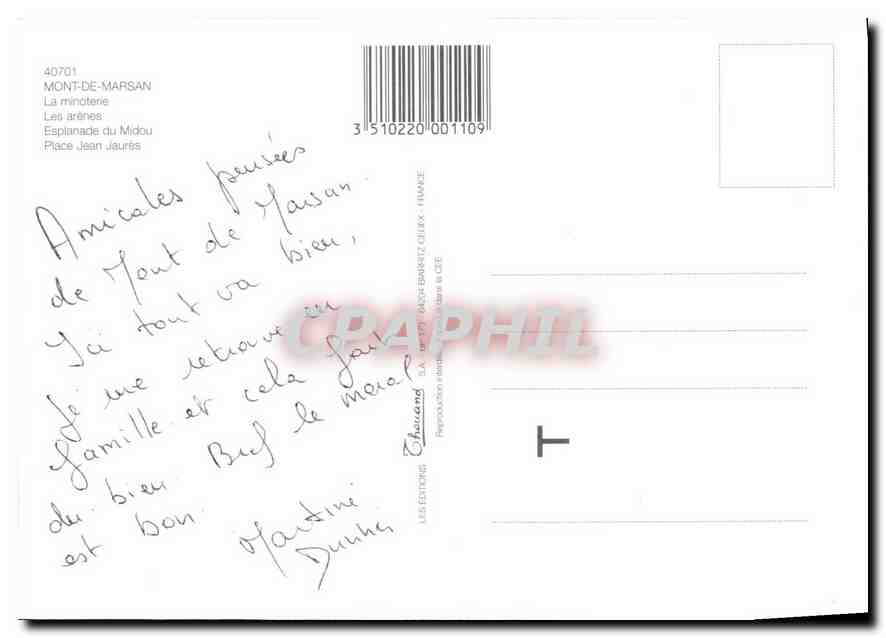 40701
MONT-DE-MARSAN
La minoterie
Les arènes
Esplanade du Midou
Place Jean Jaurès
3 510220 001109
Amicales pensées
de Mont de Marsan.
Ici tout va bien,
Je me retrouve en
famille et cela fait
du bien. Bref le moral
est bon.
Martine
LES ÉDITIONS Thouand S.A. - BP 173 - 64204 BIARRITZ CEDEX - FRANCE
Reproduction interdite dans la CEE
CPAPHIL
T